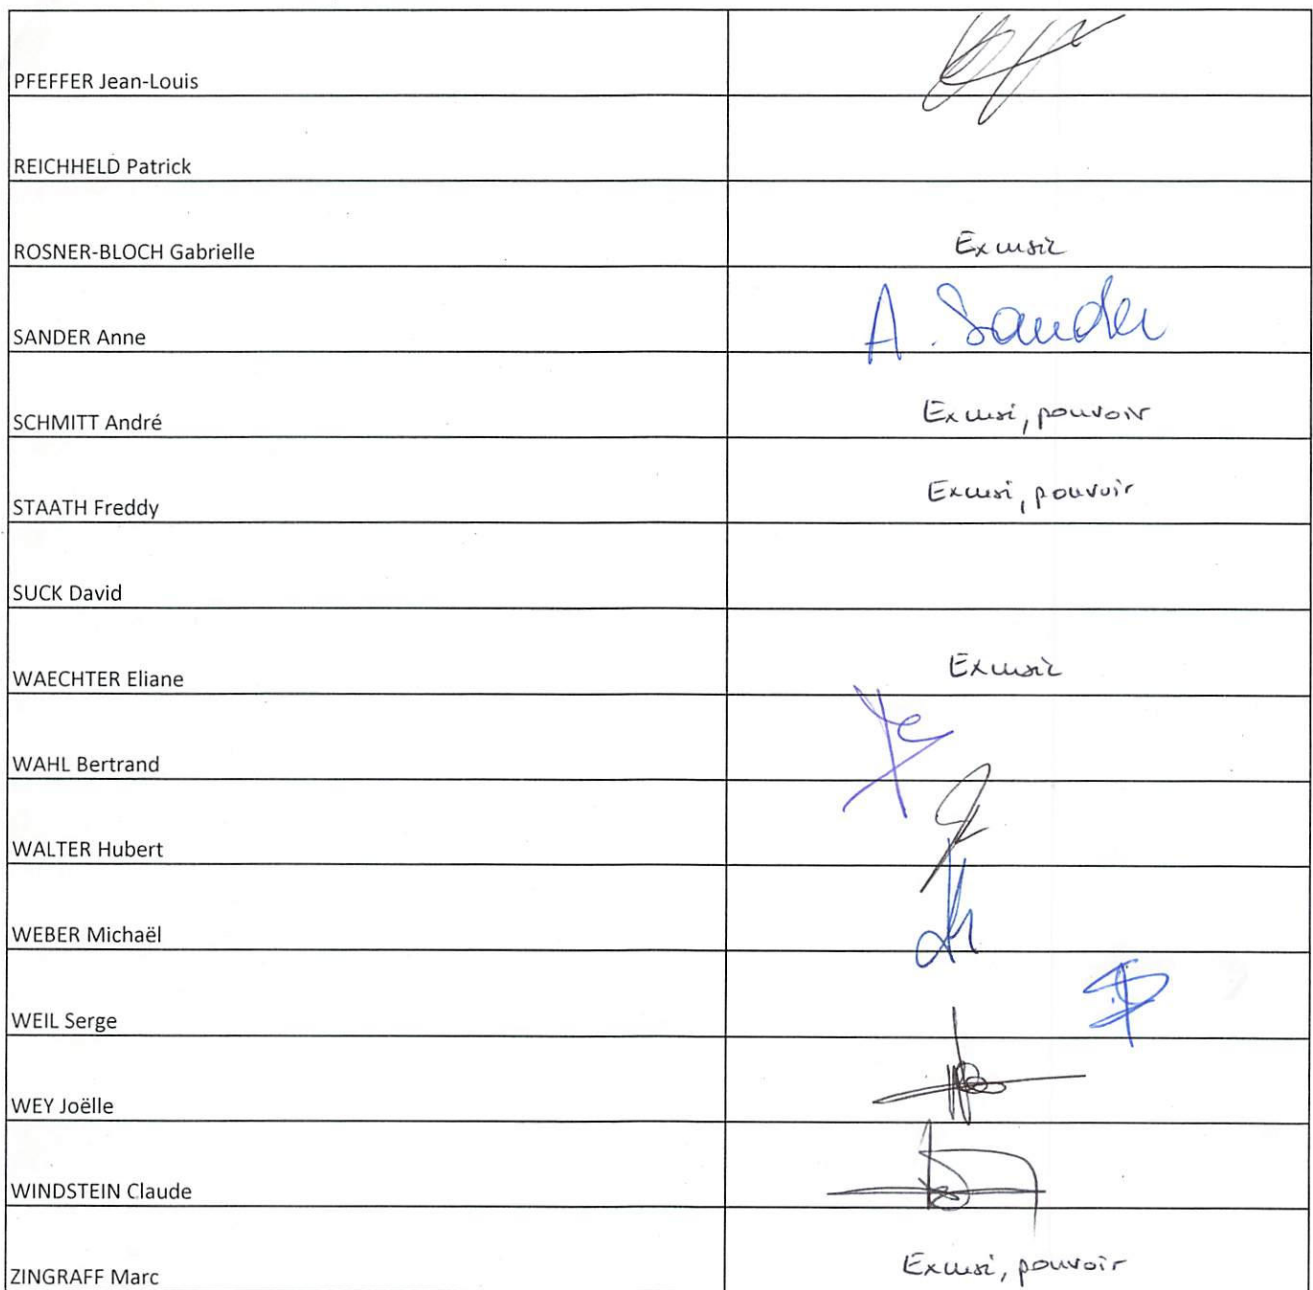 PFEFFER Jean-Louis
REICHHELD Patrick
ROSNER-BLOCH Gabrielle Excusée
SANDER Anne A. Sander
SCHMITT André Excusé, pouvoir
STAATH Freddy Excusé, pouvoir
SUCK David
WAECHTER Eliane Excusée
WAHL Bertrand
WALTER Hubert
WEBER Michaël
WEIL Serge
WEY Joëlle
WINDSTEIN Claude
ZINGRAFF Marc Excusé, pouvoir